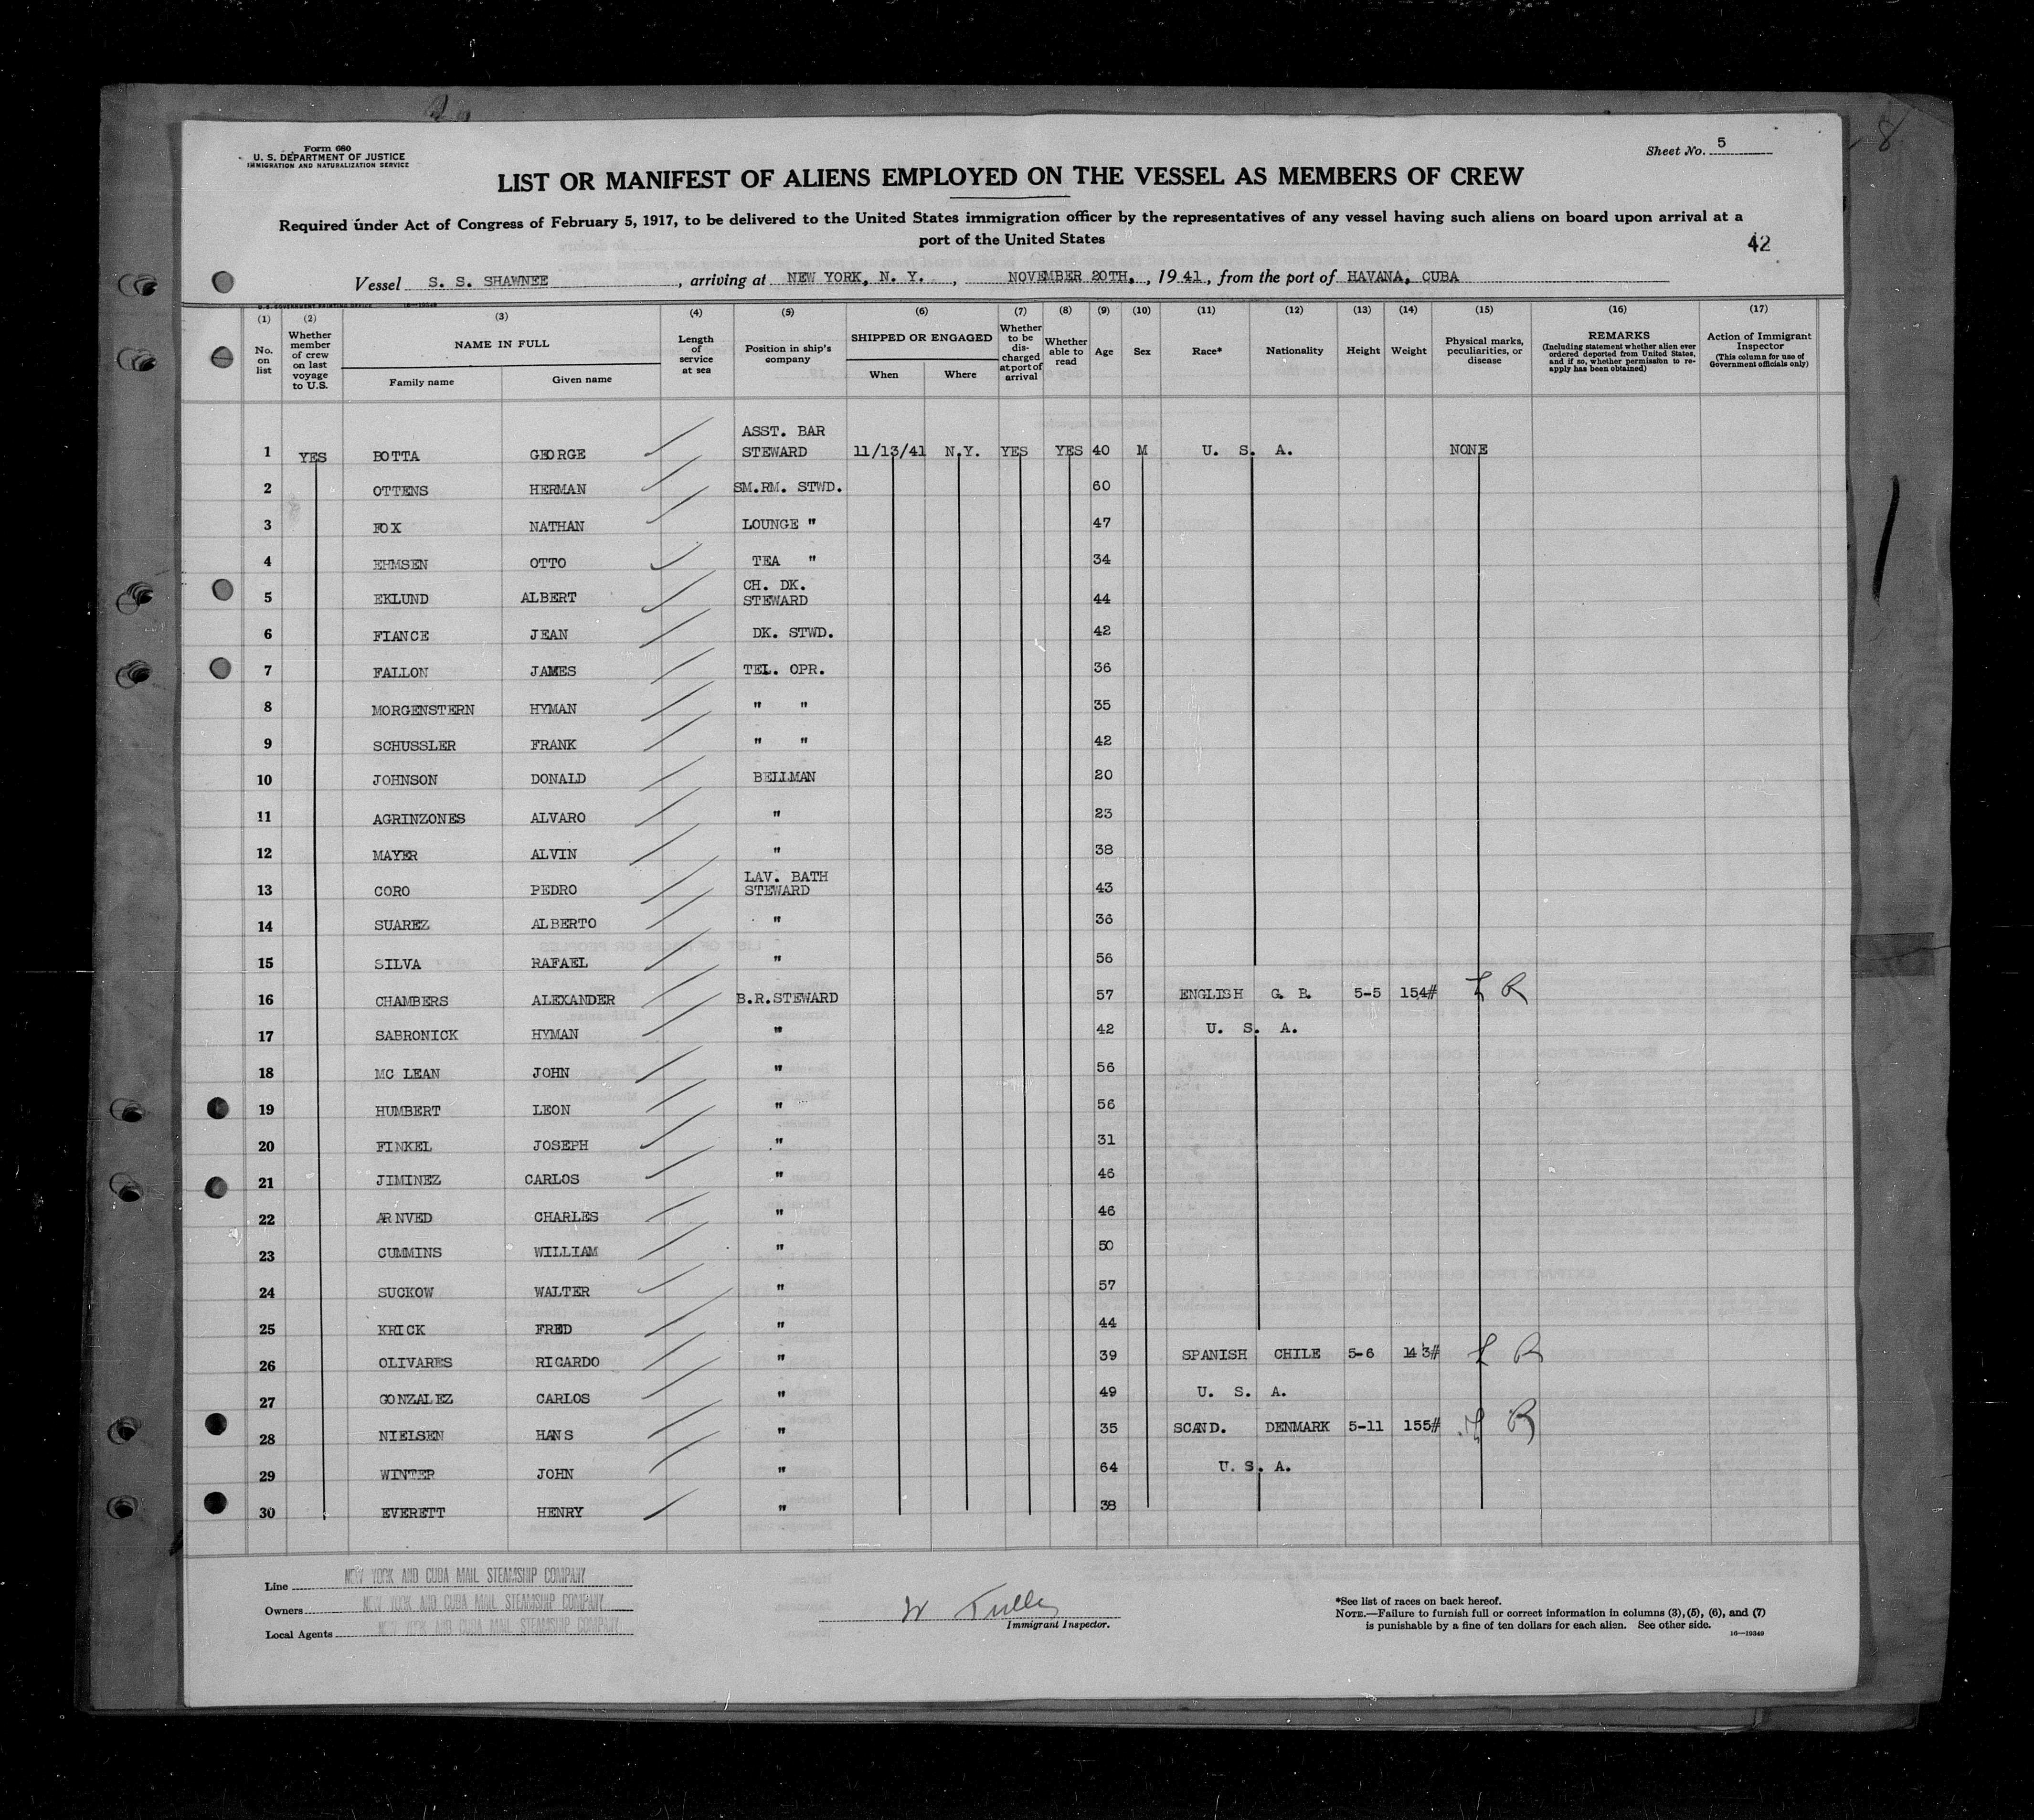 Form 680
U. S. DEPARTMENT OF JUSTICE
IMMIGRATION AND NATURALIZATION SERVICE
Sheet No. 5
8
LIST OR MANIFEST OF ALIENS EMPLOYED ON THE VESSEL AS MEMBERS OF CREW
Required under Act of Congress of February 5, 1917, to be delivered to the United States immigration officer by the representatives of any vessel having such aliens on board upon arrival at a
port of the United States
42
Vessel S. S. SHAWNEE, arriving at NEW YORK, N. Y., NOVEMBER 20TH, 1941, from the port of HAVANA, CUBA
U. S. GOVERNMENT PRINTING OFFICE 16—19349
(1) No. on list
(2) Whether member of crew on last voyage to U.S.
(3) NAME IN FULL
Family name
Given name
(4) Length of service at sea
(5) Position in ship's company
(6) SHIPPED OR ENGAGED
When
Where
(7) Whether to be discharged at port of arrival
(8) Whether able to read
(9) Age
(10) Sex
(11) Race*
(12) Nationality
(13) Height
(14) Weight
(15) Physical marks, peculiarities, or disease
(16) REMARKS
(Including statement whether alien ever ordered deported from United States, and if so, whether permission to re-apply has been obtained)
(17) Action of Immigrant Inspector
(This column for use of Government officials only)
1 YES BOTTA GEORGE ASST. BAR STEWARD 11/13/41 N.Y. YES YES 40 M U. S. A. NONE
2 OTTENS HERMAN SM.RM. STWD. 60
3 FOX NATHAN LOUNGE " 47
4 EHMSEN OTTO TEA " 34
5 EKLUND ALBERT CH. DK. STEWARD 44
6 FIANCE JEAN DK. STWD. 42
7 FALLON JAMES TEL. OPR. 36
8 MORGENSTERN HYMAN " " 35
9 SCHUSSLER FRANK " " 42
10 JOHNSON DONALD BELLMAN 20
11 AGRINZONES ALVARO " 23
12 MAYER ALVIN " 38
13 CORO PEDRO LAV. BATH STEWARD 43
14 SUAREZ ALBERTO " 36
15 SILVA RAFAEL " 56
16 CHAMBERS ALEXANDER B.R.STEWARD 57 ENGLISH G. B. 5-5 154# L R
17 SABRONICK HYMAN " 42 U. S. A.
18 MC LEAN JOHN " 56
19 HUMBERT LEON " 56
20 FINKEL JOSEPH " 31
21 JIMINEZ CARLOS " 46
22 ARNVED CHARLES " 46
23 CUMMINS WILLIAM " 50
24 SUCKOW WALTER " 57
25 KRICK FRED " 44
26 OLIVARES RICARDO " 39 SPANISH CHILE 5-6 143# L R
27 GONZALEZ CARLOS " 49 U. S. A.
28 NIELSEN HANS " 35 SCAND. DENMARK 5-11 155# L R
29 WINTER JOHN " 64 U. S. A.
30 EVERETT HENRY " 38
Line NEW YORK AND CUBA MAIL STEAMSHIP COMPANY
Owners NEW YORK AND CUBA MAIL STEAMSHIP COMPANY
Local Agents NEW YORK AND CUBA MAIL STEAMSHIP COMPANY
W Tulley
Immigrant Inspector.
*See list of races on back hereof.
NOTE.—Failure to furnish full or correct information in columns (3), (5), (6), and (7)
is punishable by a fine of ten dollars for each alien. See other side.
16—19349